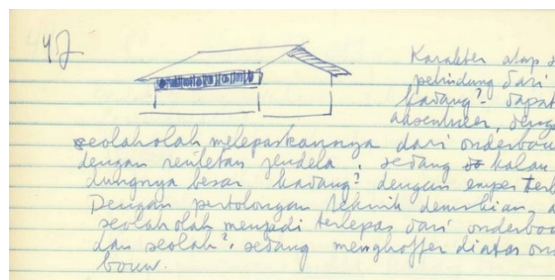 47
Karakter atap s
pelindung dari
kadang² dapat
aksentueer, denga
seolaholah melepaskannya dari onderbou
dengan rentetan jendela, sedang kalau
dungnya besar kadang² dengan emper terl
Dengan pertolongan teknik demikian, a
seolaholah menjadi terlepas dari onderbou
dan seolah², sedang menghoffer diatas on
bouw.